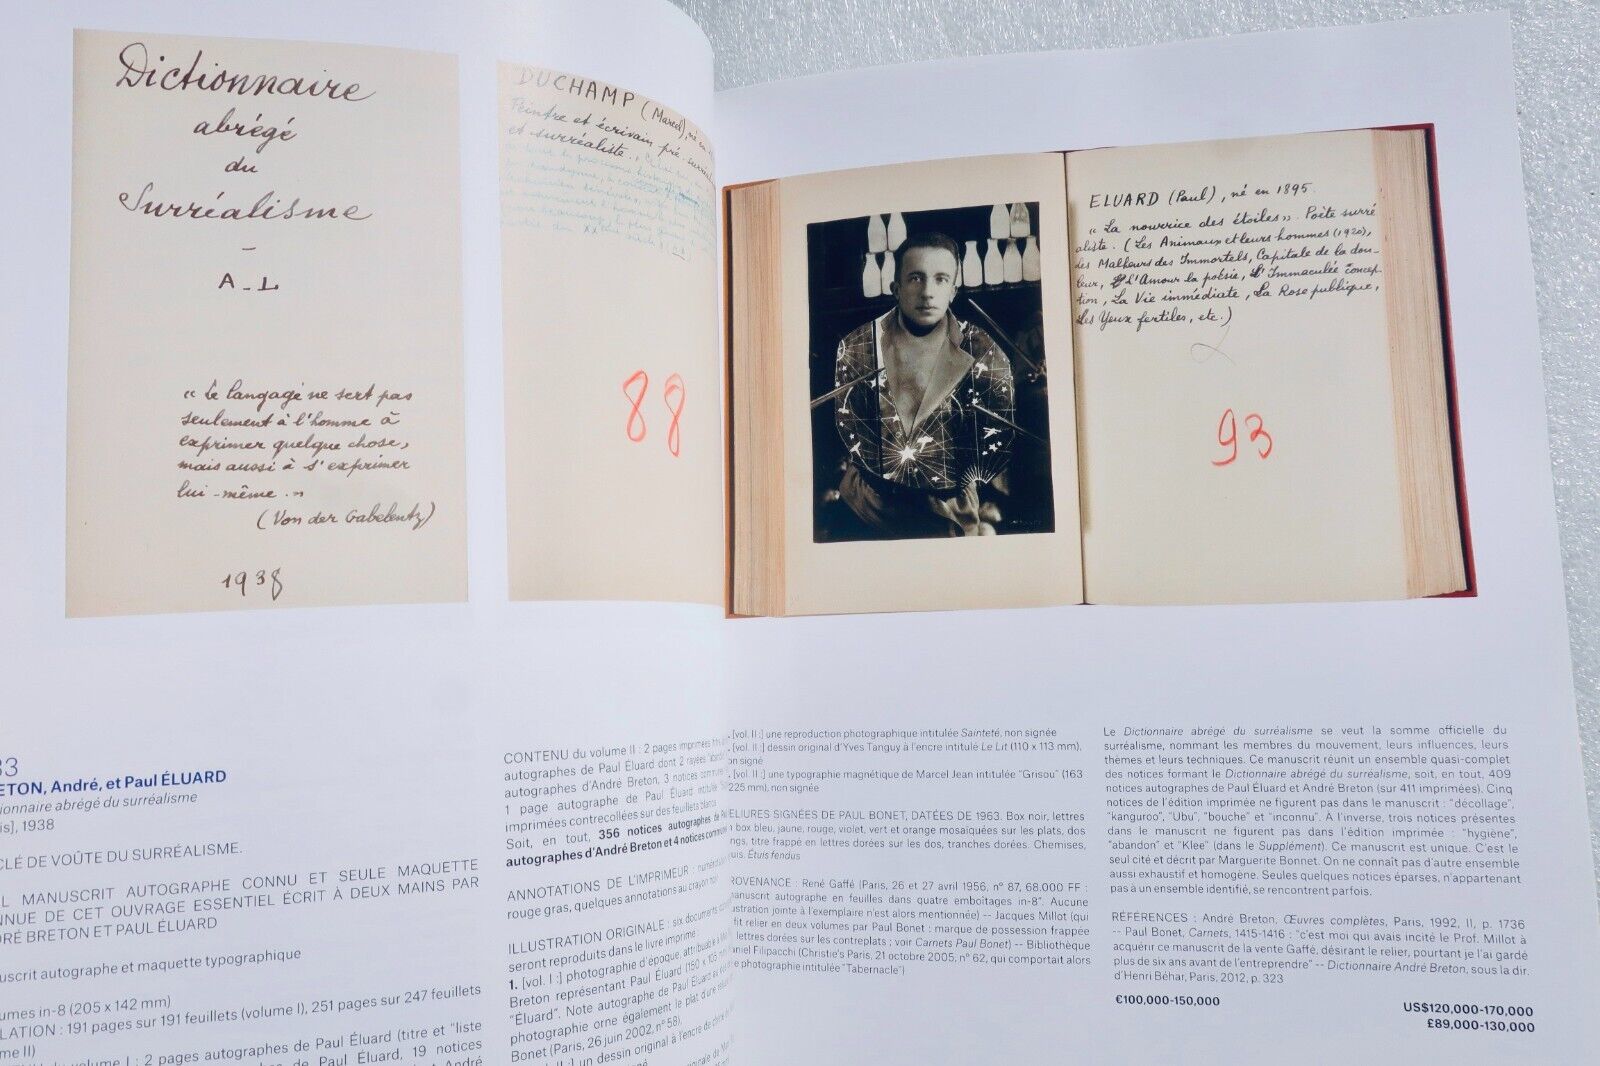 Dictionnaire
abrégé
du
Surréalisme
–
A-L
« Le langage ne sert pas
seulement à l'homme à
exprimer quelque chose,
mais aussi à s'exprimer
lui-même. »
(Von der Gabelentz)
1938
DUCHAMP (Marcel), né en
Peintre et écrivain pré-surréal
et surréaliste.
88
ELUARD (Paul), né en 1895.
« La nourrice des étoiles ». Poète surré
aliste. (Les Animaux et leurs hommes (1920),
Les Malheurs des Immortels, Capitale de la dou-
leur, L'Amour la poésie, L'Immaculée concep-
tion, La Vie immédiate, La Rose publique,
Les Yeux fertiles, etc.)
93
33
ETON, André, et Paul ÉLUARD
tionnaire abrégé du surréalisme
is], 1938
CLÉ DE VOÛTE DU SURRÉALISME.
L MANUSCRIT AUTOGRAPHE CONNU ET SEULE MAQUETTE
NNUE DE CET OUVRAGE ESSENTIEL ÉCRIT À DEUX MAINS PAR
DRÉ BRETON ET PAUL ÉLUARD
uscrit autographe et maquette typographique
umes in-8 (205 x 142 mm)
LATION : 191 pages sur 191 feuillets (volume I), 251 pages sur 247 feuillets
me II)
volume I : 2 pages autographes de Paul Éluard (titre et "liste
de Paul Éluard, 19 notices
CONTENU du volume II : 2 pages imprimées
autographes de Paul Éluard dont 2 rayées
autographes d'André Breton, 3 notices communes
1 page autographe de Paul Éluard intitulée
imprimées contrecollées sur des feuillets blancs
Soit, en tout, 356 notices autographes de
autographes d'André Breton et 4 notices communes
ANNOTATIONS DE L'IMPRIMEUR :
rouge gras, quelques annotations au crayon noir
ILLUSTRATION ORIGINALE : six documents
seront reproduits dans le livre imprimé
1. [vol. I :] photographie d'époque, attribuable à
Breton représentant Paul Éluard (150 x 105 mm)
"Éluard". Note autographe de Paul Éluard au
photographie orne également le plat d'une
Bonet (Paris, 26 juin 2002, n° 58).
II :] un dessin original à l'encre de
[vol. II :] une reproduction photographique intitulée Sainteté, non signée
[vol. II :] dessin original d'Yves Tanguy à l'encre intitulé Le Lit (110 x 113 mm),
on signé
[vol. II :] une typographie magnétique de Marcel Jean intitulée "Grisou" (163
225 mm), non signée
ELIURES SIGNÉES DE PAUL BONET, DATÉES DE 1963. Box noir, lettres
n box bleu, jaune, rouge, violet, vert et orange mosaïquées sur les plats, dos
ngs, titre frappé en lettres dorées sur les dos, tranches dorées. Chemises,
uis. Étuis fendus
ROVENANCE : René Gaffé (Paris, 26 et 27 avril 1956, n° 87, 68.000 FF :
manuscrit autographe en feuilles dans quatre emboîtages in-8". Aucune
ustration jointe à l'exemplaire n'est alors mentionnée) -- Jacques Millot (qui
fit relier en deux volumes par Paul Bonet : marque de possession frappée
lettres dorées sur les contreplats ; voir Carnets Paul Bonet) -- Bibliothèque
aniel Filipacchi (Christie's Paris, 21 octobre 2005, n° 62, qui comportait alors
e photographie intitulée "Tabernacle")
Le Dictionnaire abrégé du surréalisme se veut la somme officielle du
surréalisme, nommant les membres du mouvement, leurs influences, leurs
thèmes et leurs techniques. Ce manuscrit réunit un ensemble quasi-complet
des notices formant le Dictionnaire abrégé du surréalisme, soit, en tout, 409
notices autographes de Paul Éluard et André Breton (sur 411 imprimées). Cinq
notices de l'édition imprimée ne figurent pas dans le manuscrit : "décollage",
"kanguroo", "Ubu", "bouche" et "inconnu". À l'inverse, trois notices présentes
dans le manuscrit ne figurent pas dans l'édition imprimée : "hygiène",
"abandon" et "Klee" (dans le Supplément). Ce manuscrit est unique. C'est le
seul cité et décrit par Marguerite Bonnet. On ne connaît pas d'autre ensemble
aussi exhaustif et homogène. Seules quelques notices éparses, n'appartenant
pas à un ensemble identifié, se rencontrent parfois.
RÉFÉRENCES : André Breton, Œuvres complètes, Paris, 1992, II, p. 1736
-- Paul Bonet, Carnets, 1415-1416 : "c'est moi qui avais incité le Prof. Millot à
acquérir ce manuscrit de la vente Gaffé, désirant le relier, pourtant je l'ai gardé
plus de six ans avant de l'entreprendre" -- Dictionnaire André Breton, sous la dir.
d'Henri Béhar, Paris, 2012, p. 323
€100,000-150,000
US$120,000-170,000
£89,000-130,000